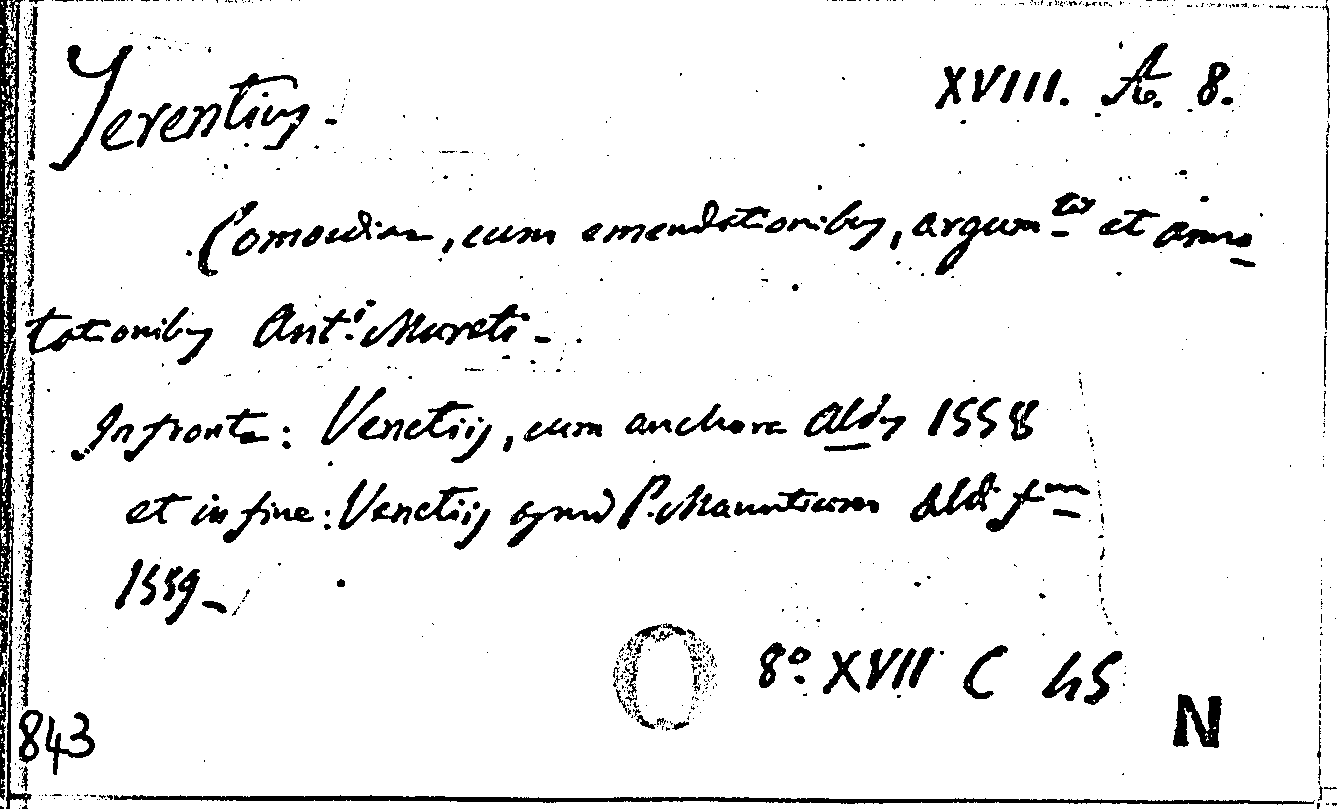 Terentius.
XVIII. A. 8.
Comoediae, cum emendationibus, argum.tis et anno
tationibus Ant.i Mureti.
In fronte: Venetiis, cum anchora Aldus 1558
et in fine: Venetiis apud P. Manutium Aldi f.
1559.
8º XVII C 45
N
843